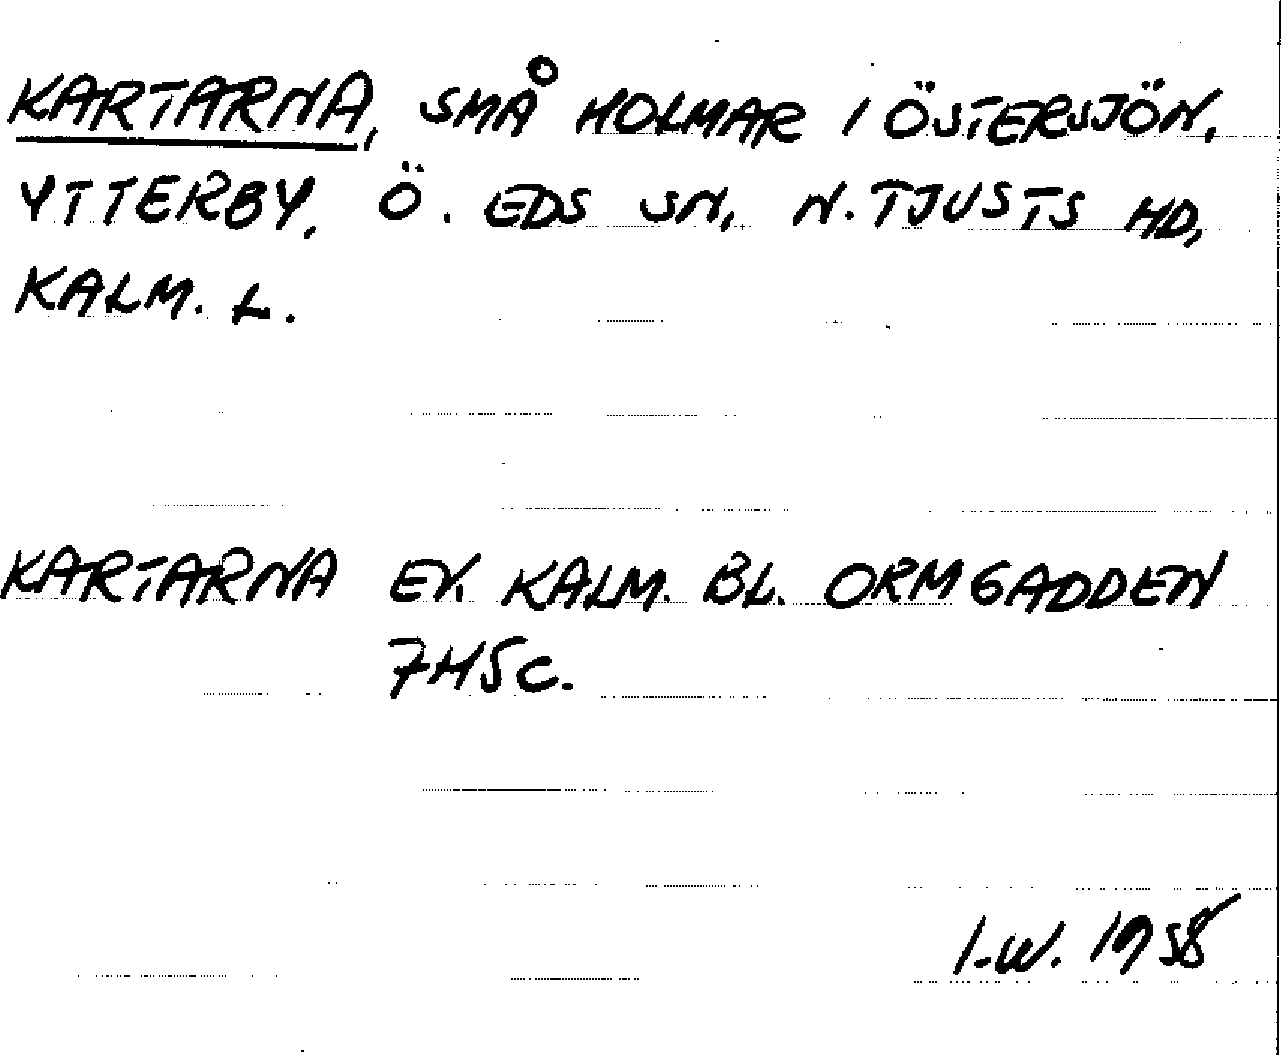 KARTARNA, SMÅ HOLMAR I ÖSTERSJÖN,
YTTERBY, Ö. EDS SN, N. TJUSTS HD,
KALM. L.
KARTARNA EK. KALM. BL. ORMGADDEN
7H5c.
I.W. 1958